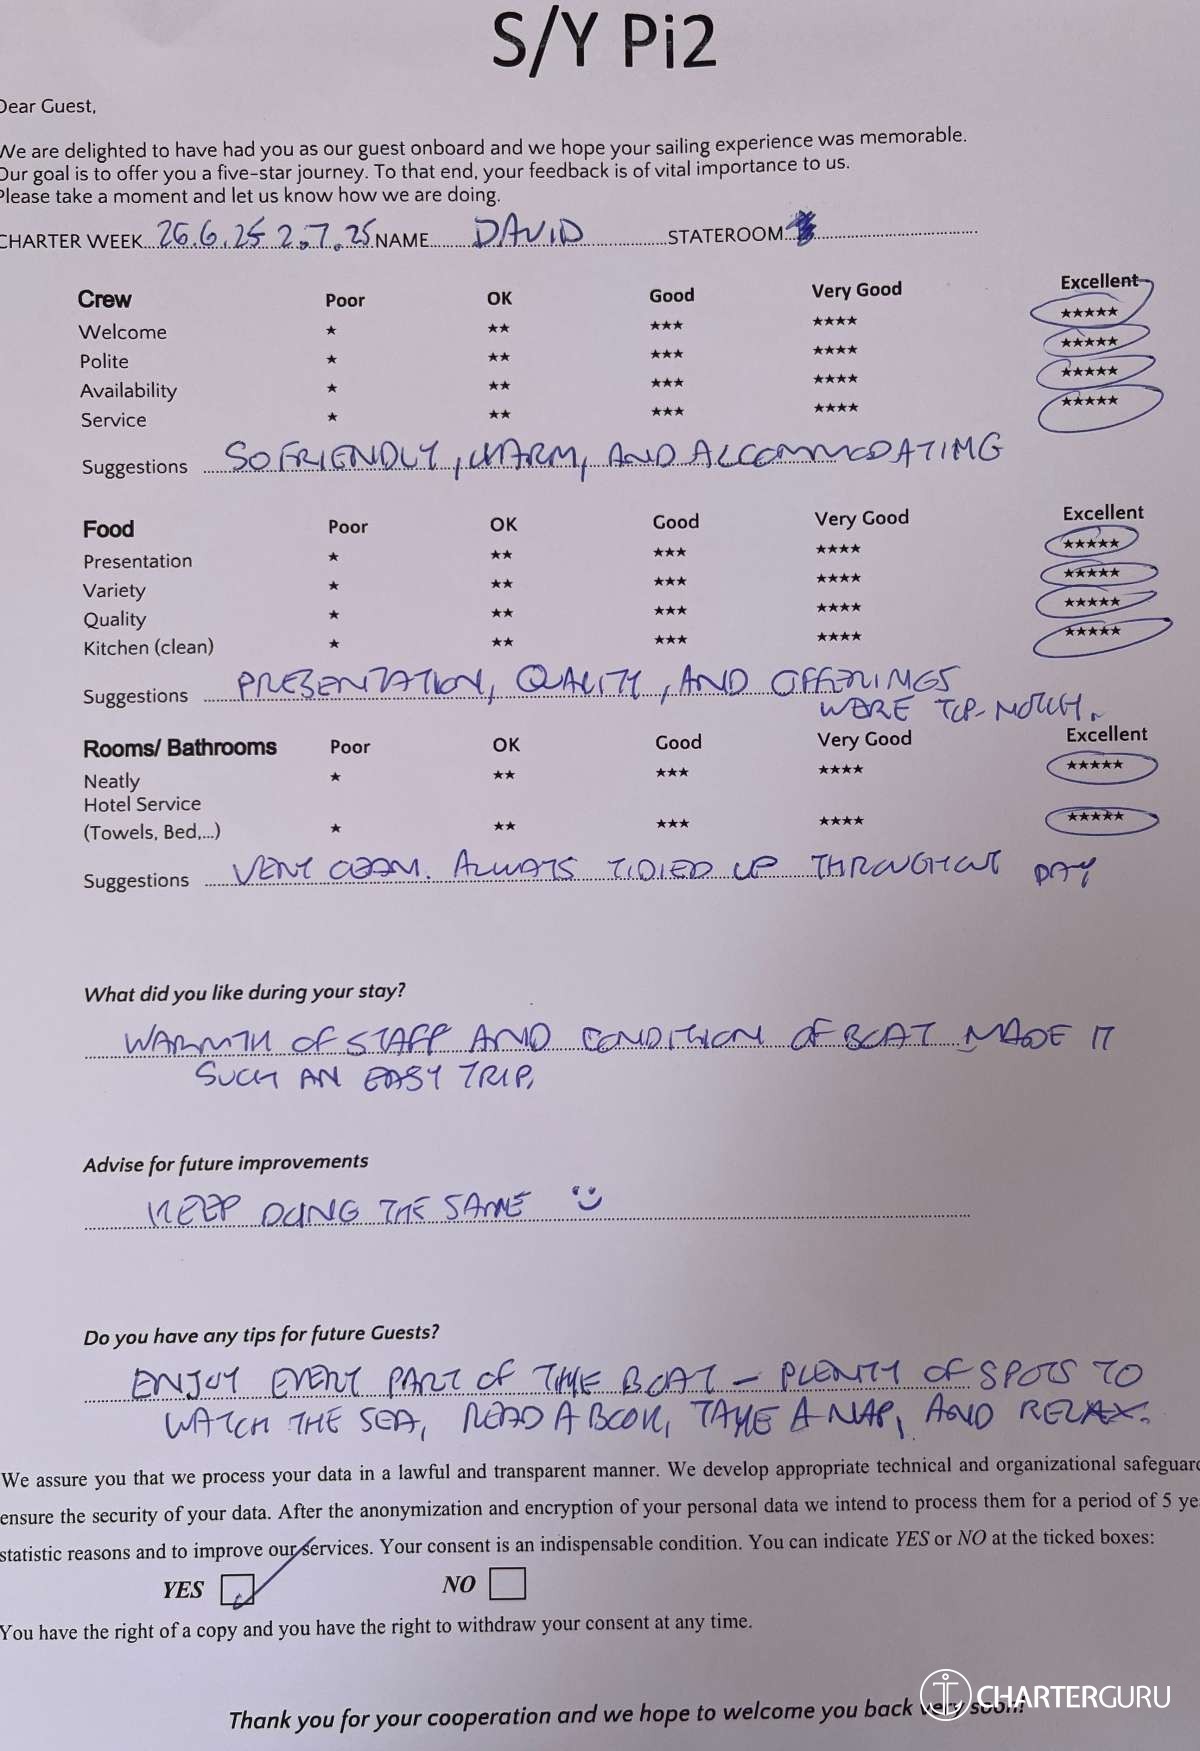 S/Y Pi2
Dear Guest,
We are delighted to have had you as our guest onboard and we hope your sailing experience was memorable.
Our goal is to offer you a five-star journey. To that end, your feedback is of vital importance to us.
Please take a moment and let us know how we are doing.
CHARTER WEEK 26.6.25 2.7.25 NAME DAVID STATEROOM
Crew Poor OK Good Very Good Excellent
Welcome ★ ★★ ★★★ ★★★★ ★★★★★
Polite ★ ★★ ★★★ ★★★★ ★★★★★
Availability ★ ★★ ★★★ ★★★★ ★★★★★
Service ★ ★★ ★★★ ★★★★ ★★★★★
Suggestions SO FRIENDLY, WARM, AND ACCOMMODATING
Food Poor OK Good Very Good Excellent
Presentation ★ ★★ ★★★ ★★★★ ★★★★★
Variety ★ ★★ ★★★ ★★★★ ★★★★★
Quality ★ ★★ ★★★ ★★★★ ★★★★★
Kitchen (clean) ★ ★★ ★★★ ★★★★ ★★★★★
Suggestions PRESENTATION, QUALITY, AND OFFERINGS
WERE TOP-NOTCH.
Rooms/ Bathrooms Poor OK Good Very Good Excellent
Neatly ★ ★★ ★★★ ★★★★ ★★★★★
Hotel Service
(Towels, Bed,...) ★ ★★ ★★★ ★★★★ ★★★★★
Suggestions VERY CLEAN. ALWAYS TIDIED UP THROUGHOUT DAY
What did you like during your stay?
WARMTH OF STAFF AND CONDITION OF BOAT MADE IT
SUCH AN EASY TRIP.
Advise for future improvements
KEEP DOING THE SAME
Do you have any tips for future Guests?
ENJOY EVERY PART OF THE BOAT - PLENTY OF SPOTS TO
WATCH THE SEA, READ A BOOK, TAKE A NAP, AND RELAX.
We assure you that we process your data in a lawful and transparent manner. We develop appropriate technical and organizational safeguar
ensure the security of your data. After the anonymization and encryption of your personal data we intend to process them for a period of 5 ye
statistic reasons and to improve our services. Your consent is an indispensable condition. You can indicate YES or NO at the ticked boxes:
YES NO
You have the right of a copy and you have the right to withdraw your consent at any time.
Thank you for your cooperation and we hope to welcome you back very soon!
CHARTERGURU